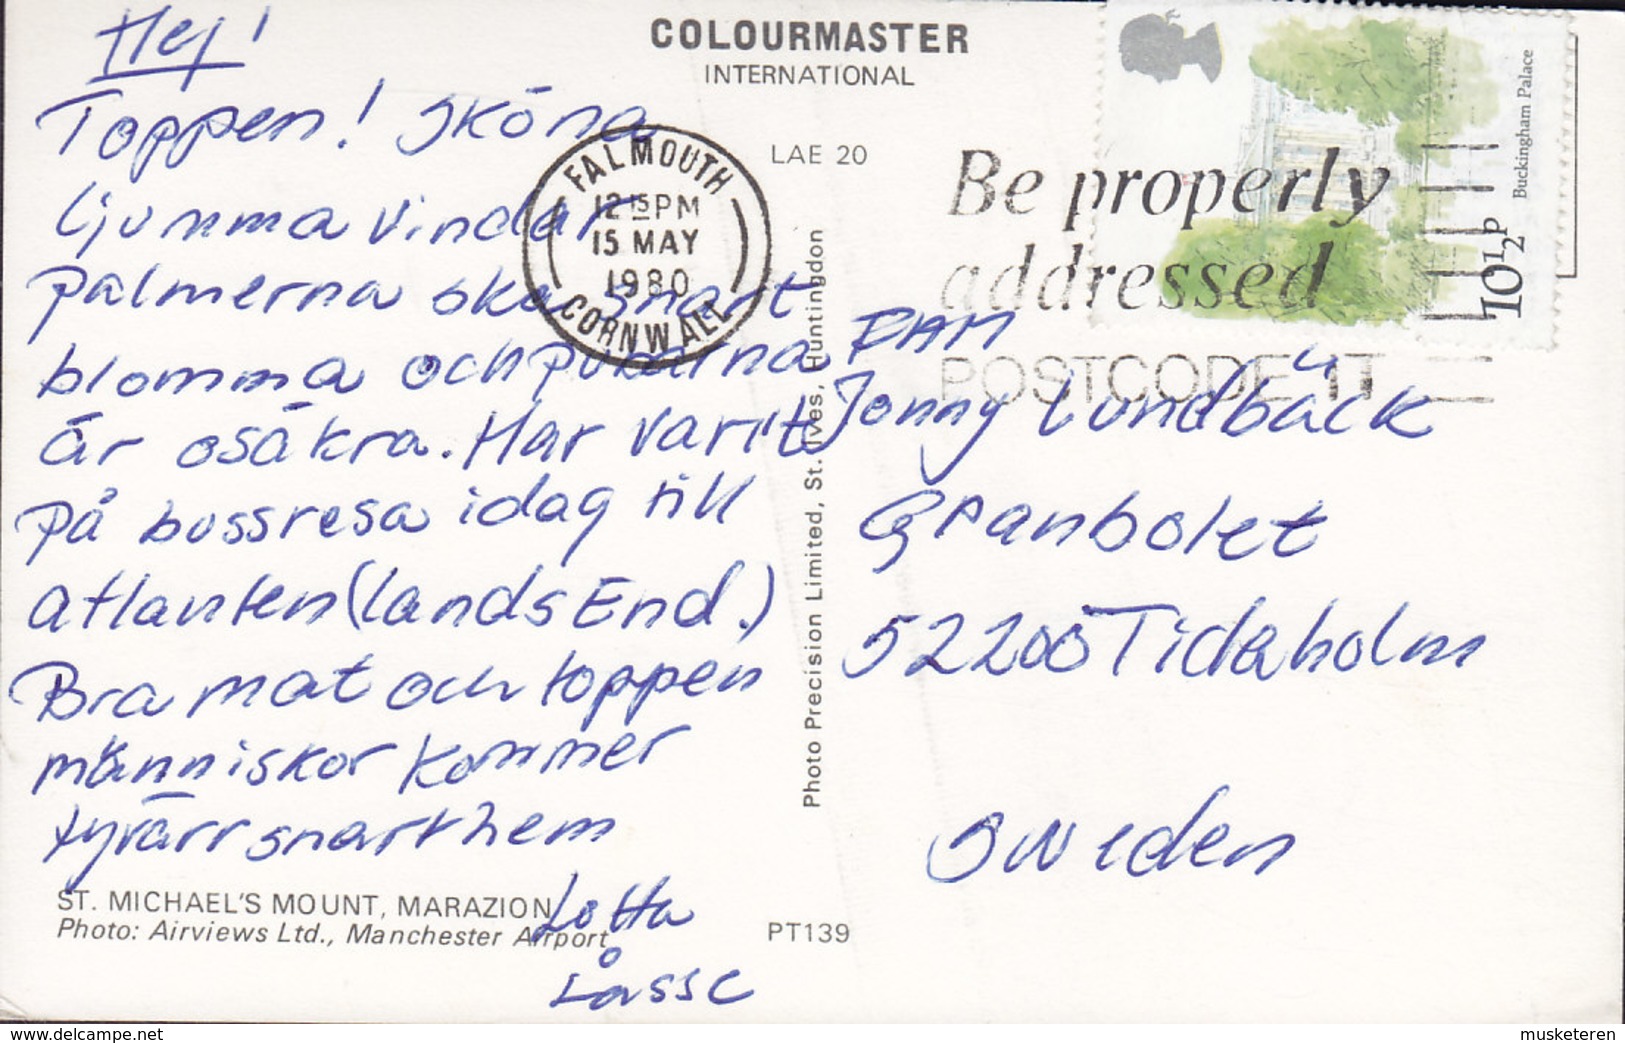 Hej!
Toppen! Sköna
ljumma vindar
palmerna ska snart
blomma och
är osäkra. Har varit
på bussresa idag till
atlanten (lands End.)
Bra mat och toppen
människor kommer
tyvärr snart hem
Lotta
Låsse
ST. MICHAEL'S MOUNT, MARAZION
Photo: Airviews Ltd., Manchester Airport
COLOURMASTER
INTERNATIONAL
LAE 20
PT139
Photo Precision Limited, St. Ives, Huntingdon
FALMOUTH
12 15 PM
15 MAY
1980
CORNWALL
Be properly
addressed
POSTCODE IT
Buckingham Palace
10½P
PAM
Jonny Lundbäck
Granbolet
52200 Tidaholm
Sweden
www.delcampe.net
musketeren